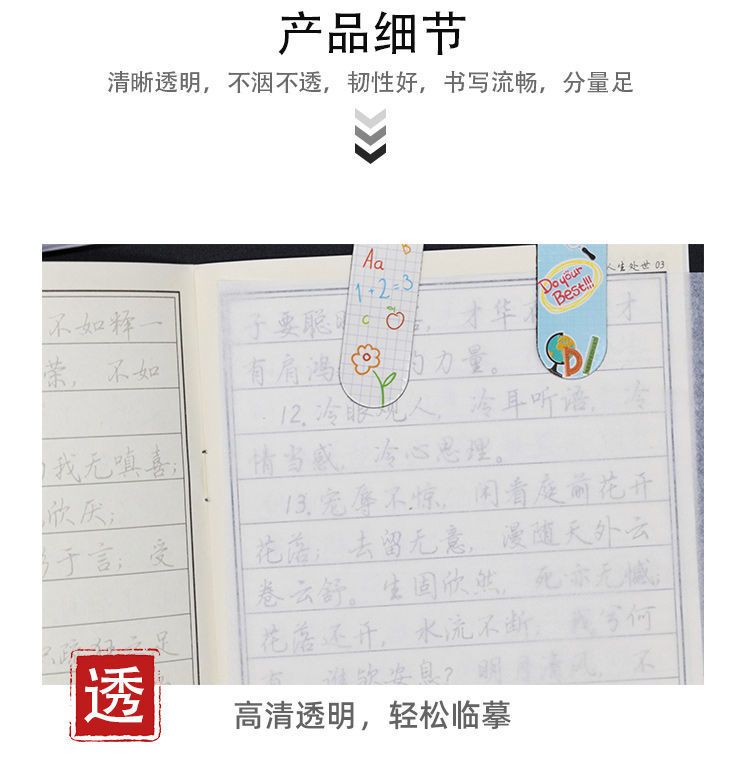 产品细节
清晰透明，不洇不透，韧性好，书写流畅，分量足
人生处世 03
不如释一
荣，不如
我无嗔喜；
欣厌；
于言；受
足
Aa
B
1+2=3
c
Do your
Best!!!
D
子要聪
才华
才
有肩鸿
的力量。
12.冷眼观人，冷耳听语，冷
情当感，冷心思理。
13.宠辱不惊，闲看庭前花开
花落；去留无意，漫随天外云
卷云舒。生固欣然，死亦无憾；
花落还开，水流不断，我兮何
有，谁欤安息？明月清风，不
透
高清透明，轻松临摹